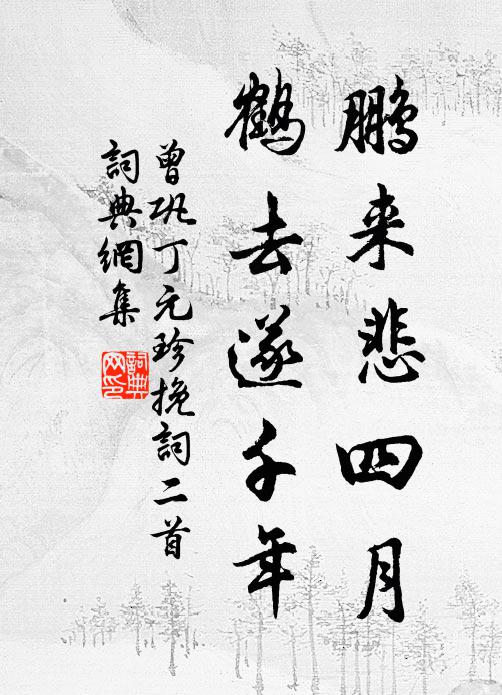 鵬来悲四月
鶴去遂千年
曾巩丁元珍挽詞二首
詞典網集
詞典网印